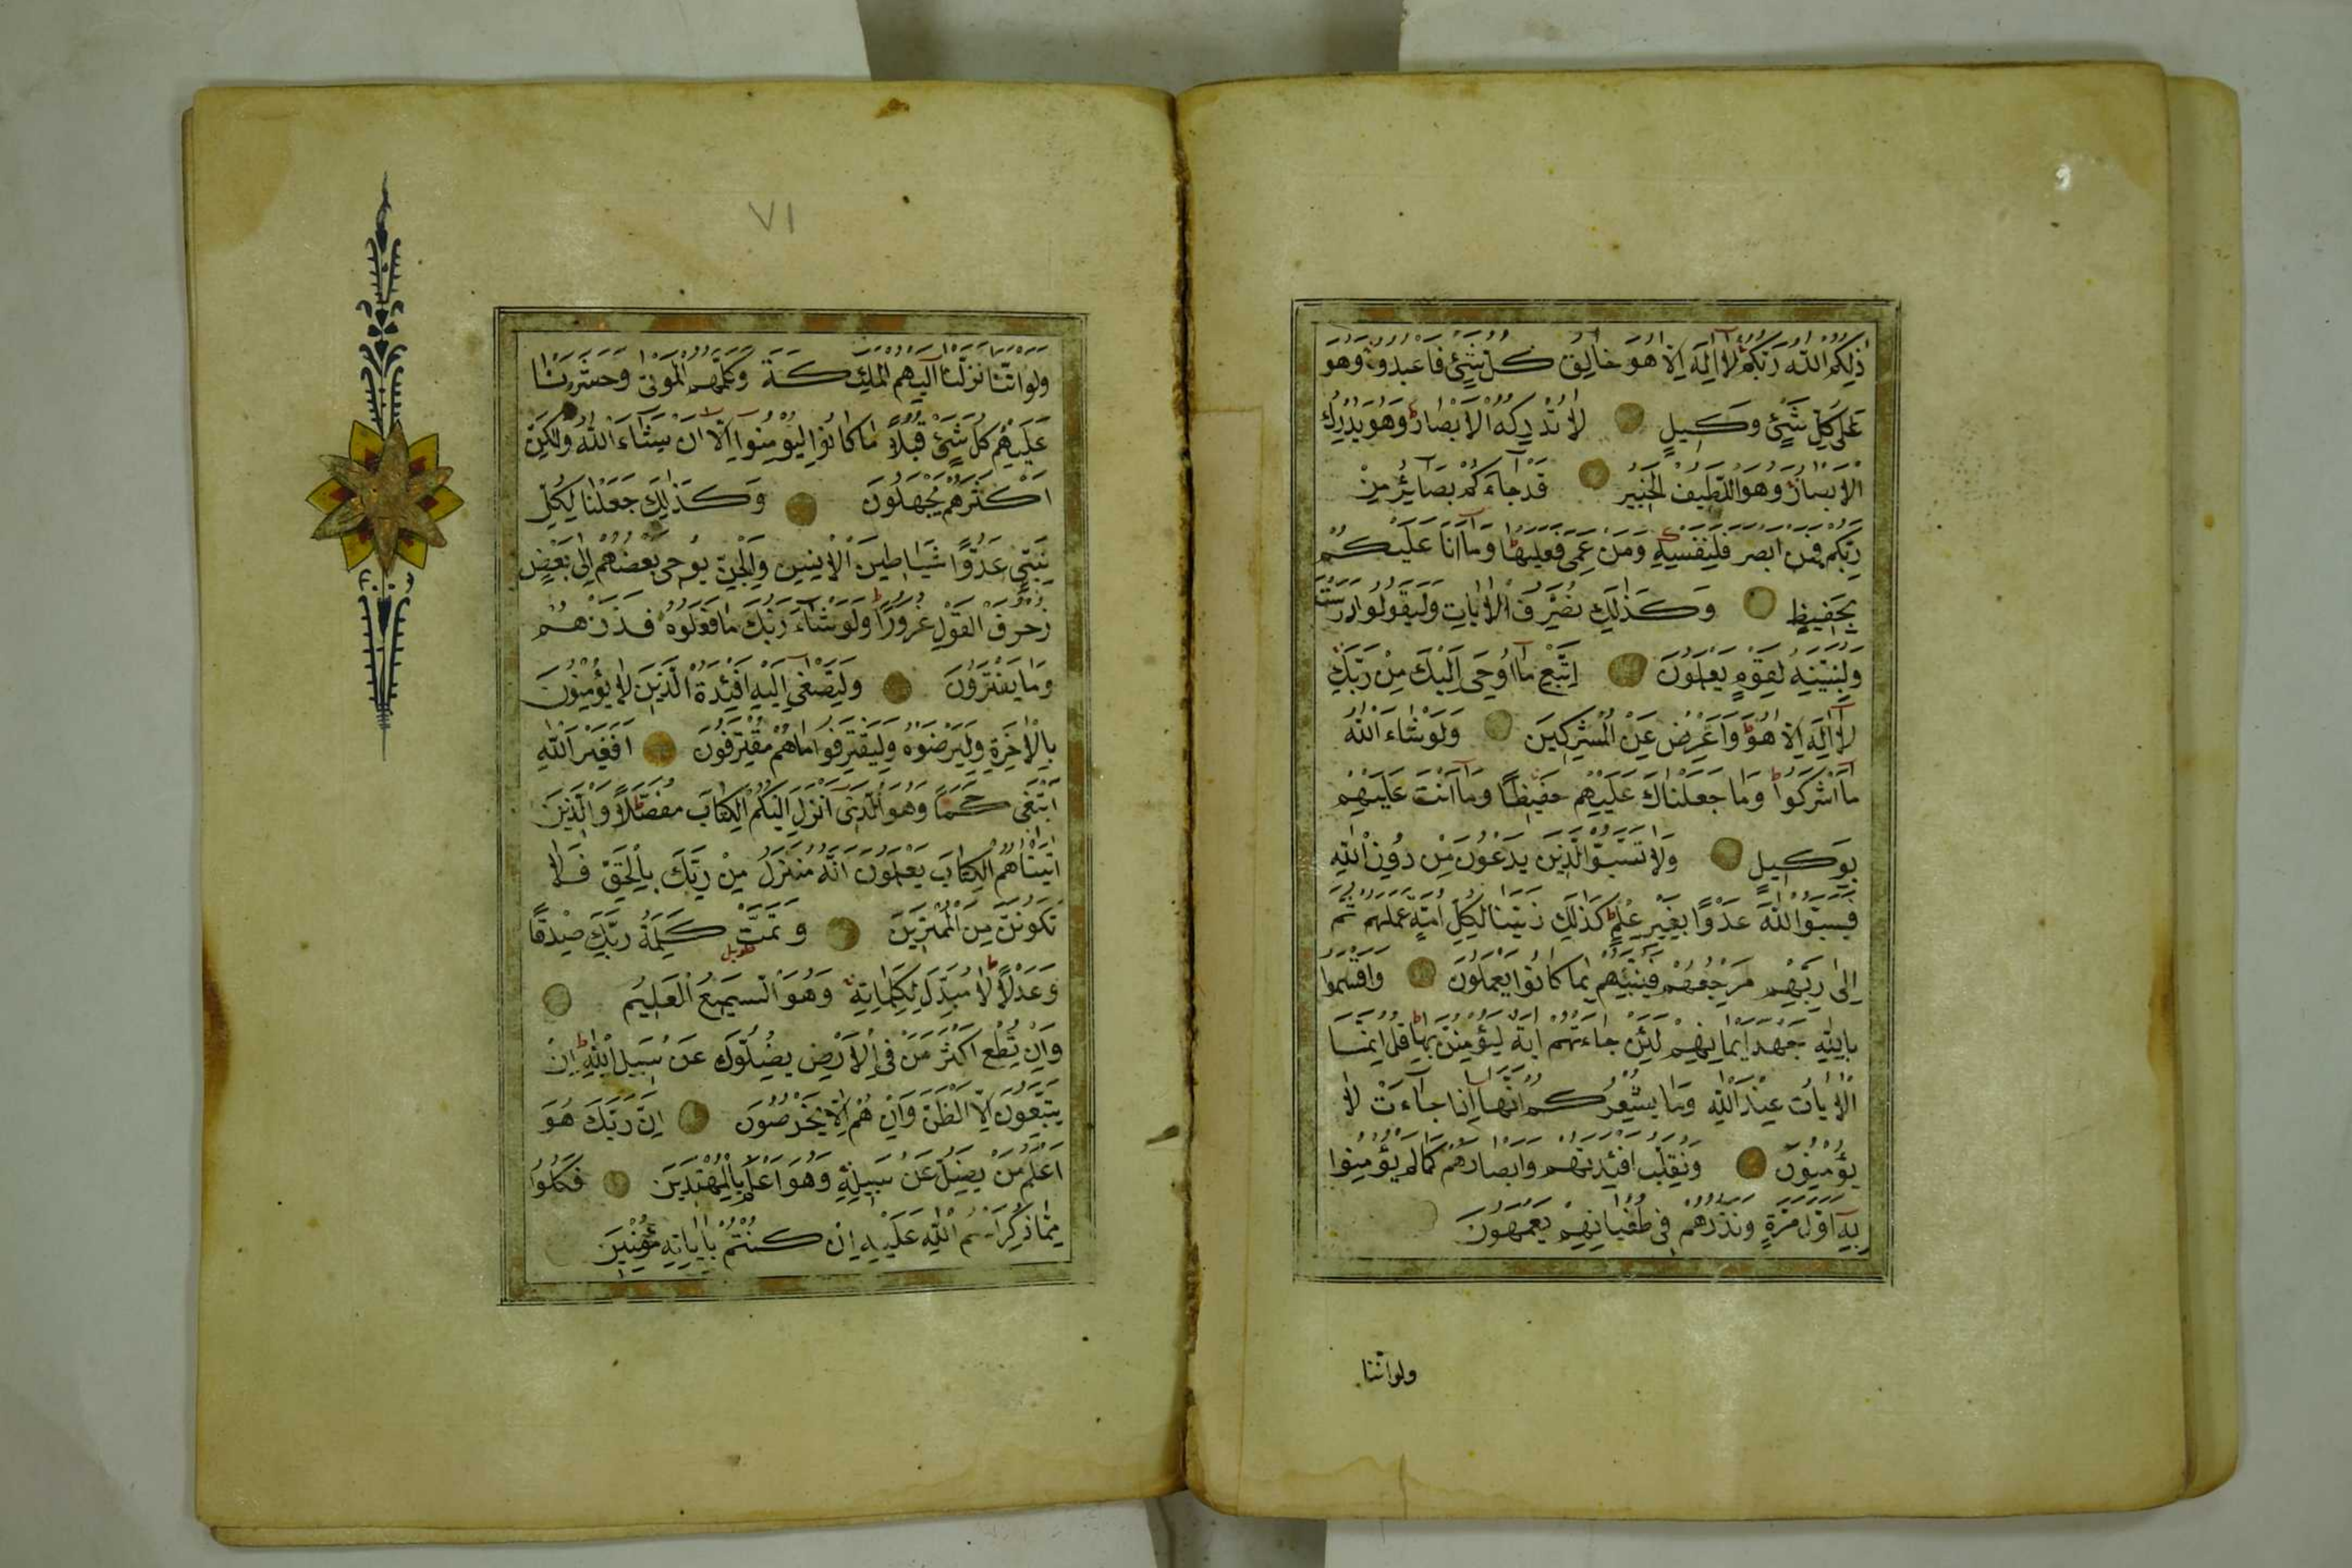 ذٰلِكُمُ اللّٰهُ رَبُّكُمْ لَا اِلٰهَ اِلَّا هُوَ خَالِقُ كُلِّ شَیْءٍ فَاعْبُدُوهُ وَهُوَ
عَلٰى كُلِّ شَیْءٍ وَكِيلٌ لَا تُدْرِكُهُ الْاَبْصَارُ وَهُوَ يُدْرِكُ
الْاَبْصَارَ وَهُوَ اللَّطِيفُ الْخَبِيرُ قَدْ جَاءَكُمْ بَصَائِرُ مِنْ
رَبِّكُمْ فَمَنْ اَبْصَرَ فَلِنَفْسِهِ وَمَنْ عَمِىَ فَعَلَيْهَا وَمَا اَنَا عَلَيْكُمْ
بِحَفِيظٍ وَكَذٰلِكَ نُصَرِّفُ الْاٰيَاتِ وَلِيَقُولُوا دَرَسْتَ
وَلِنُبَيِّنَهُ لِقَوْمٍ يَعْلَمُونَ اِتَّبِعْ مَا اُوحِىَ اِلَيْكَ مِنْ رَبِّكَ
لَا اِلٰهَ اِلَّا هُوَ وَاَعْرِضْ عَنِ الْمُشْرِكِينَ وَلَوْ شَاءَ اللّٰهُ
مَا اَشْرَكُوا وَمَا جَعَلْنَاكَ عَلَيْهِمْ حَفِيظًا وَمَا اَنْتَ عَلَيْهِمْ
بِوَكِيلٍ وَلَا تَسُبُّوا الَّذِينَ يَدْعُونَ مِنْ دُونِ اللّٰهِ
فَيَسُبُّوا اللّٰهَ عَدْوًا بِغَيْرِ عِلْمٍ كَذٰلِكَ زَيَّنَّا لِكُلِّ اُمَّةٍ عَمَلَهُمْ ثُمَّ
اِلٰى رَبِّهِمْ مَرْجِعُهُمْ فَيُنَبِّئُهُمْ بِمَا كَانُوا يَعْمَلُونَ وَاَقْسَمُوا
بِاللّٰهِ جَهْدَ اَيْمَانِهِمْ لَئِنْ جَاءَتْهُمْ اٰيَةٌ لَيُؤْمِنُنَّ بِهَا قُلْ اِنَّمَا
الْاٰيَاتُ عِنْدَ اللّٰهِ وَمَا يُشْعِرُكُمْ اَنَّهَا اِذَا جَاءَتْ لَا
يُؤْمِنُونَ وَنُقَلِّبُ اَفْئِدَتَهُمْ وَاَبْصَارَهُمْ كَمَا لَمْ يُؤْمِنُوا
بِهِ اَوَّلَ مَرَّةٍ وَنَذَرُهُمْ فِى طُغْيَانِهِمْ يَعْمَهُونَ
ولو اننا
٧١
وَلَوْ اَنَّنَا نَزَّلْنَا اِلَيْهِمُ الْمَلٰئِكَةَ وَكَلَّمَهُمُ الْمَوْتٰى وَحَشَرْنَا
عَلَيْهِمْ كُلَّ شَیْءٍ قُبُلًا مَا كَانُوا لِيُؤْمِنُوا اِلَّا اَنْ يَشَاءَ اللّٰهُ وَلٰكِنَّ
اَكْثَرَهُمْ يَجْهَلُونَ وَكَذٰلِكَ جَعَلْنَا لِكُلِّ
نَبِىٍّ عَدُوًّا شَيَاطِينَ الْاِنْسِ وَالْجِنِّ يُوحِى بَعْضُهُمْ اِلٰى بَعْضٍ
زُخْرُفَ الْقَوْلِ غُرُورًا وَلَوْ شَاءَ رَبُّكَ مَا فَعَلُوهُ فَذَرْهُمْ
وَمَا يَفْتَرُونَ وَلِتَصْغٰى اِلَيْهِ اَفْئِدَةُ الَّذِينَ لَا يُؤْمِنُونَ
بِالْاٰخِرَةِ وَلِيَرْضَوْهُ وَلِيَقْتَرِفُوا مَا هُمْ مُقْتَرِفُونَ اَفَغَيْرَ اللّٰهِ
اَبْتَغِى حَكَمًا وَهُوَ الَّذِى اَنْزَلَ اِلَيْكُمُ الْكِتَابَ مُفَصَّلًا وَالَّذِينَ
اٰتَيْنَاهُمُ الْكِتَابَ يَعْلَمُونَ اَنَّهُ مُنَزَّلٌ مِنْ رَبِّكَ بِالْحَقِّ فَلَا
تَكُونَنَّ مِنَ الْمُمْتَرِينَ وَتَمَّتْ كَلِمَةُ رَبِّكَ صِدْقًا
طويل
وَعَدْلًا لَا مُبَدِّلَ لِكَلِمَاتِهِ وَهُوَ السَّمِيعُ الْعَلِيمُ
وَاِنْ تُطِعْ اَكْثَرَ مَنْ فِى الْاَرْضِ يُضِلُّوكَ عَنْ سَبِيلِ اللّٰهِ اِنْ
يَتَّبِعُونَ اِلَّا الظَّنَّ وَاِنْ هُمْ اِلَّا يَخْرُصُونَ اِنَّ رَبَّكَ هُوَ
اَعْلَمُ مَنْ يَضِلُّ عَنْ سَبِيلِهِ وَهُوَ اَعْلَمُ بِالْمُهْتَدِينَ فَكُلُوا
مِمَّا ذُكِرَ اسْمُ اللّٰهِ عَلَيْهِ اِنْ كُنْتُمْ بِاٰيَاتِهِ مُؤْمِنِينَ